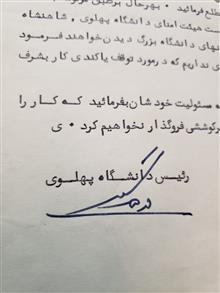 مطلع فرمائید • بهرحال برطبق
ست هیئت امنای دانشگاه پهلوی , شاهنشاه
نهای دانشگاه بزرگ دیدن خواهند فرمود
ی نداریم که درمورد توقف یاکندی کار بشرف
ه مسئولیت خودشان بفرمائید که کار را
کوششی فروگذار نخواهیم کرد • ی
رئیس دانشگاه پهلوی